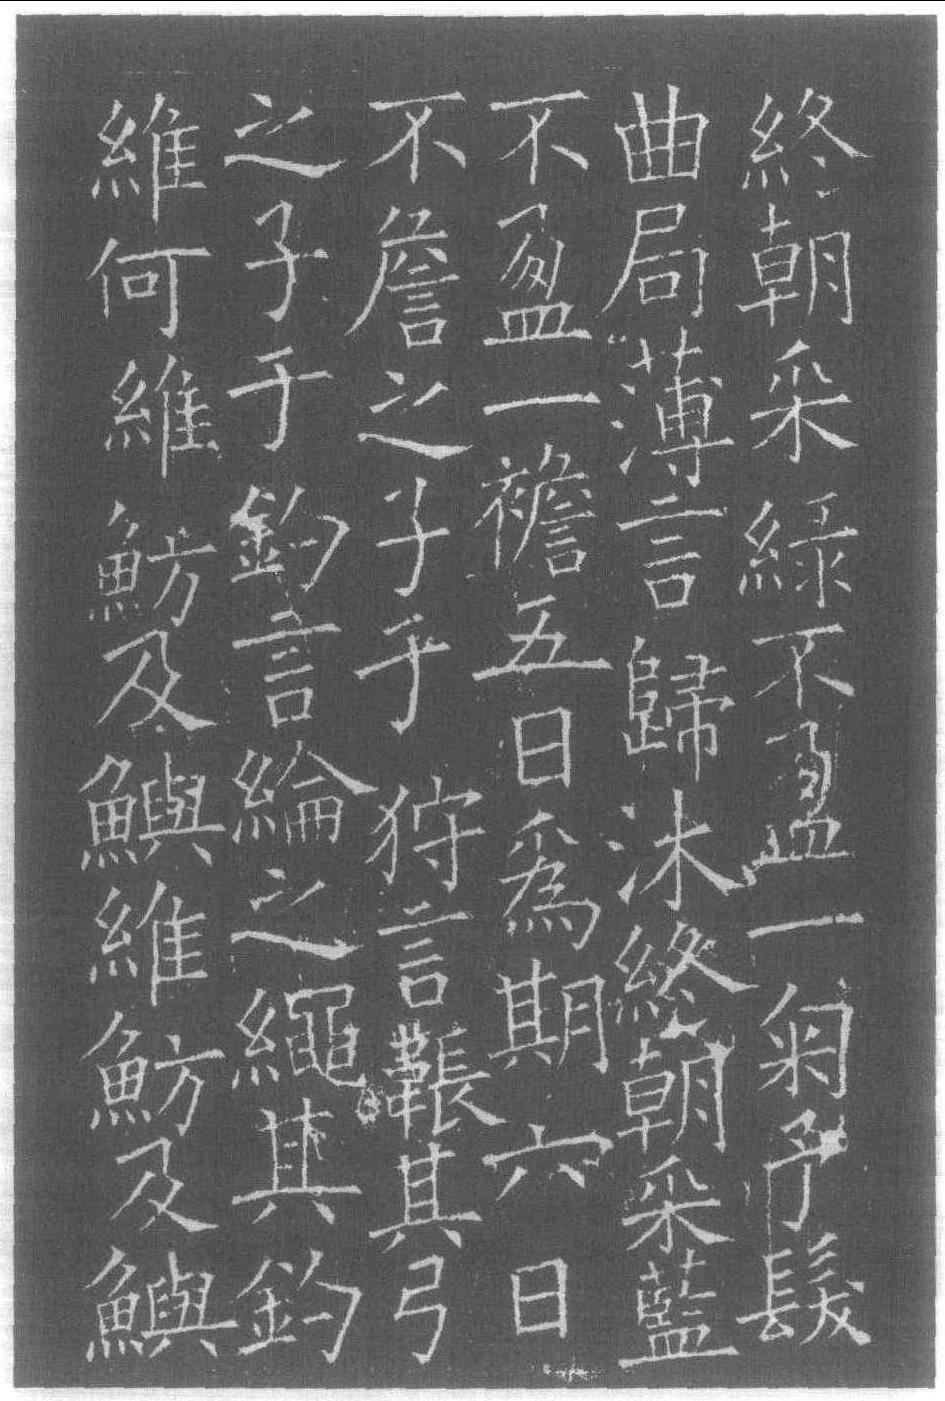 終朝采緑不盈一匊予髮
曲局薄言歸沐終朝采藍
不盈一襜五日爲期六日
不詹之子于狩言韔其弓
之子于釣言綸之繩其釣
維何維魴及鱮維魴及鱮